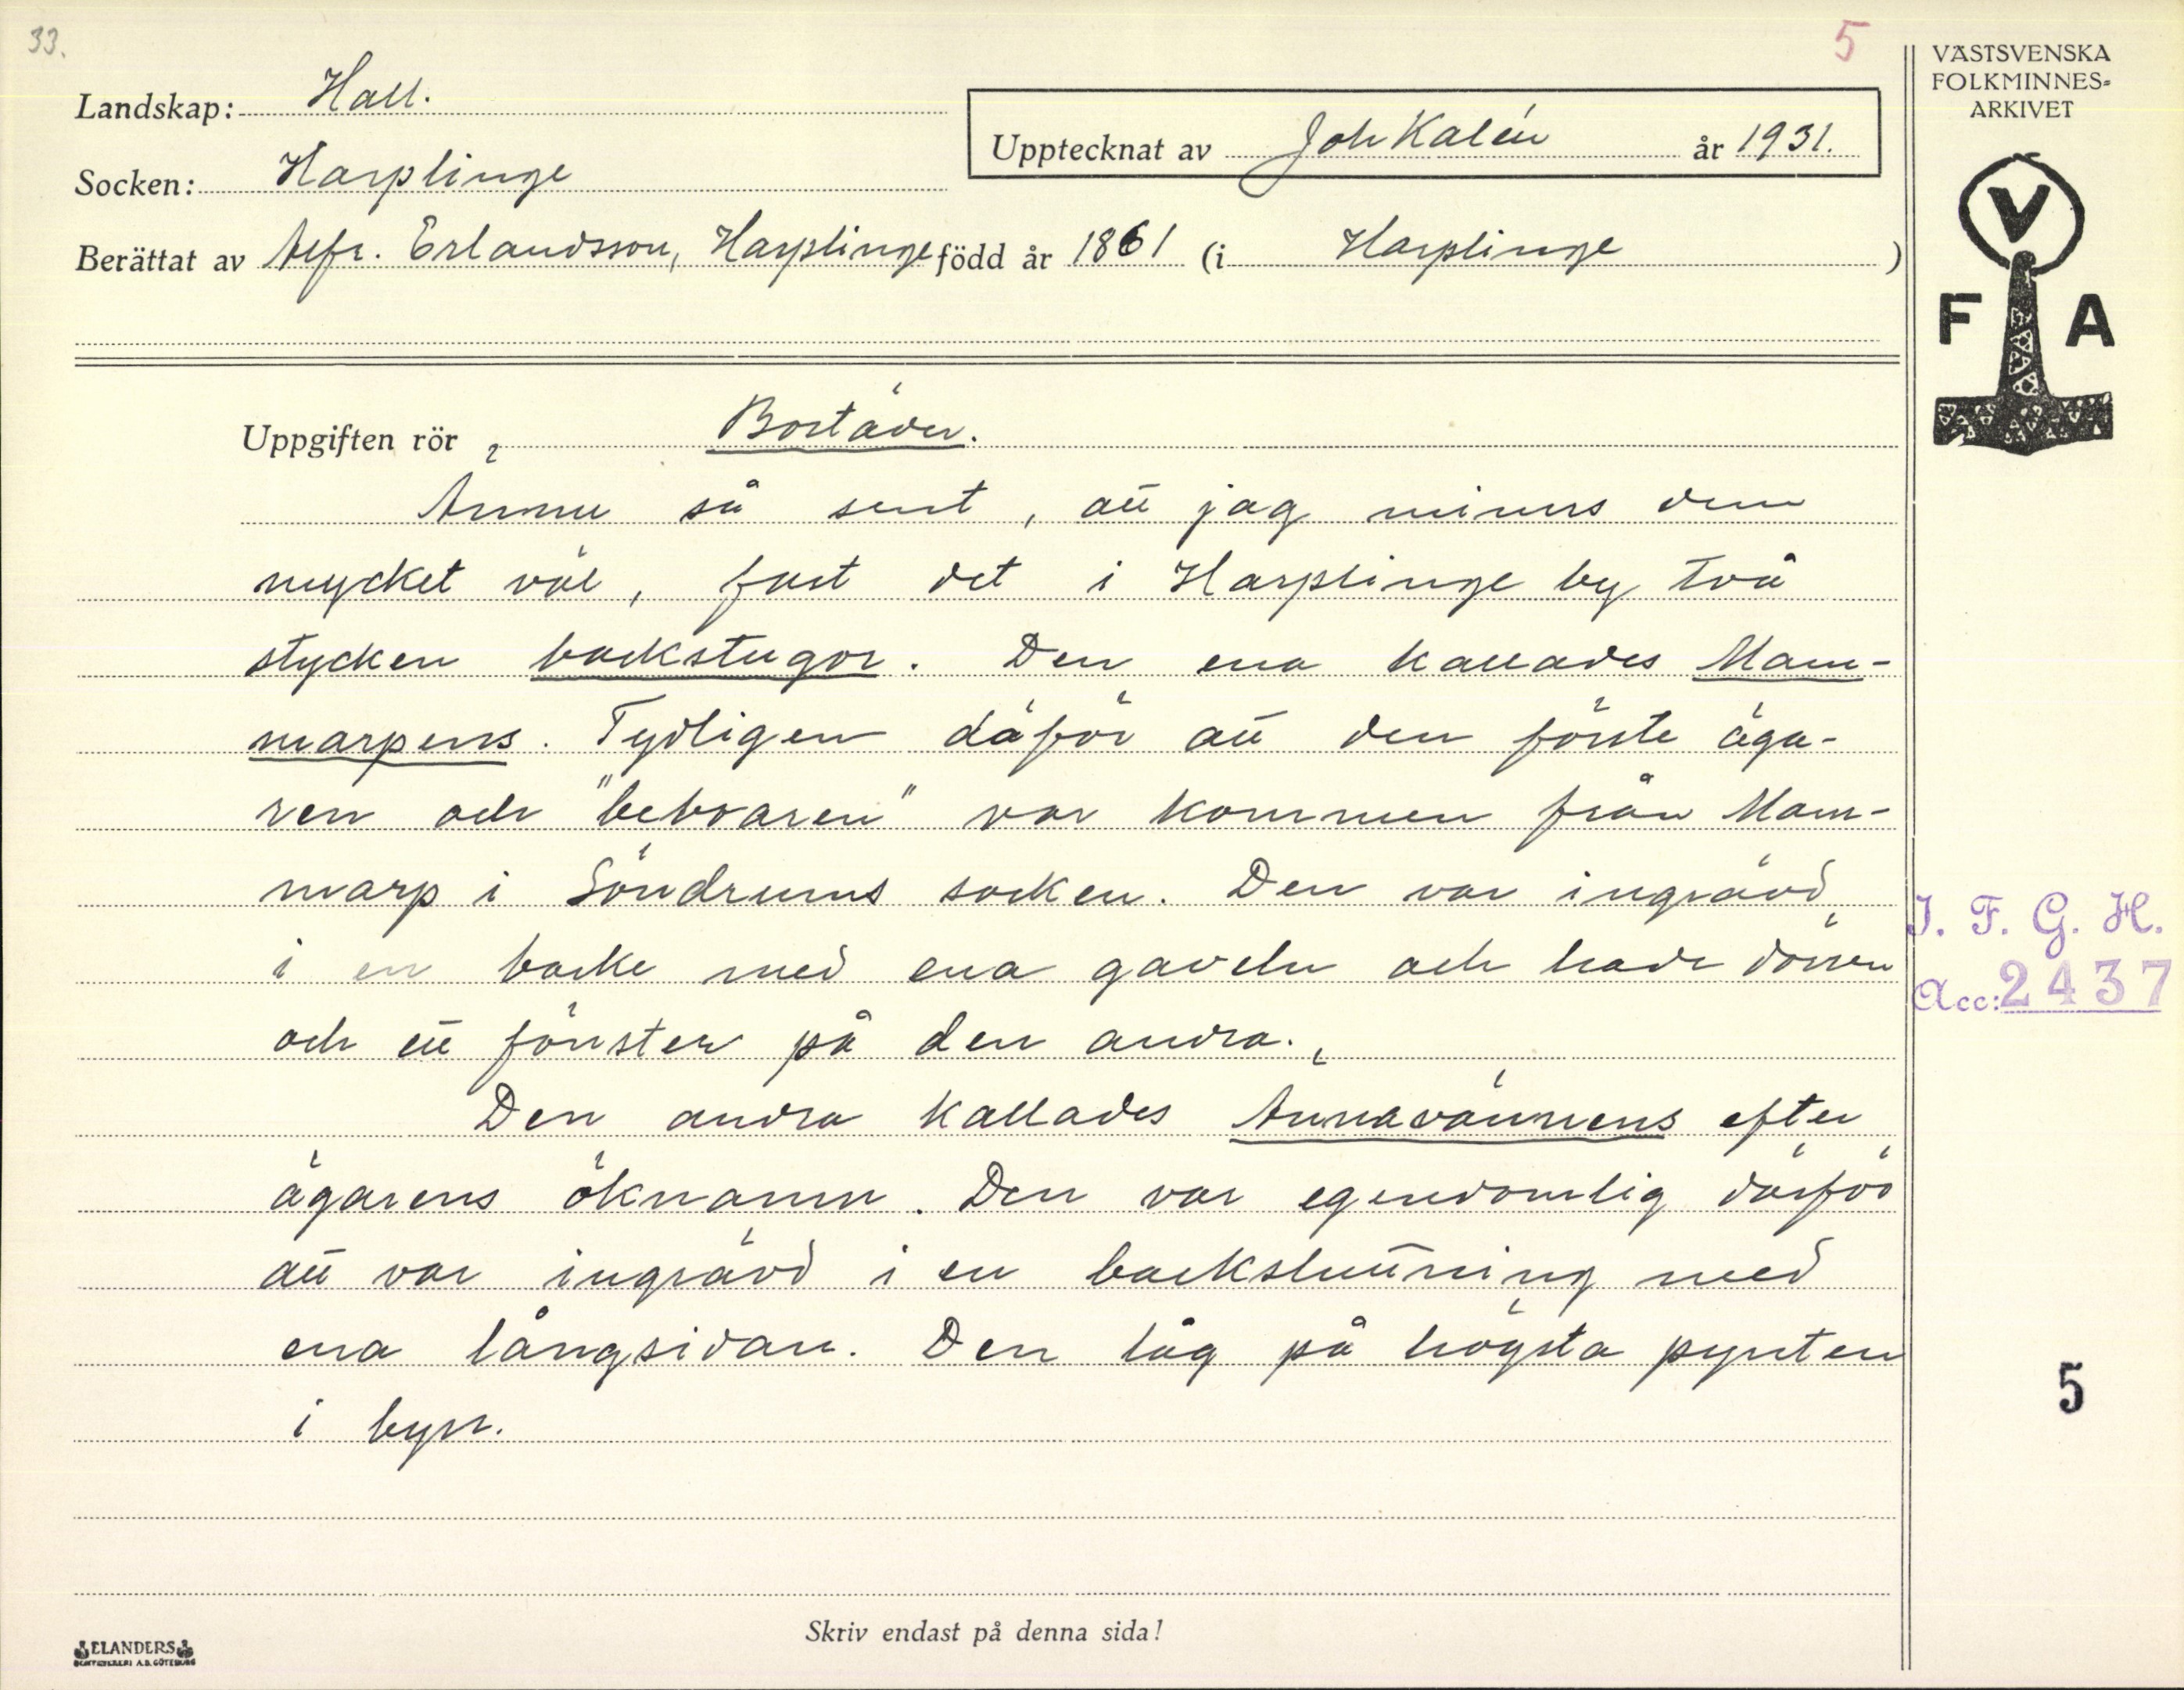 33.
5
VÄSTSVENSKA
FOLKMINNES=
ARKIVET
Landskap: Hall.
Upptecknat av Joh Kalén år 1931.
Socken: Harplinge
Berättat av Alfr. Erlandsson, Harplinge född år 1861 (i Harplinge )
V
F A
Uppgiften rör Bostäder.
Ännu så sent, att jag minns dem
mycket väl, fast det i Harplinge by två
stycken backstugor. Den ena kallades Mam-
marpens. Tydligen däför att den förste äga-
ren och "beboaren" var kommen från Mam-
marp i Söndrums socken. Den var ingrävd
i en backe med ena gaveln och hade dörren
och ett fönster på den andra.
Den andra kallades Annavännens efter
ägarens öknamn. Den var egendomlig därför
att var ingrävd i en backsluttning med
ena långsidan. Den låg på högsta pynten
i byn.
I. F. G. H.
Acc: 2437
5
Skriv endast på denna sida!
ELANDERS
BOKTRYCKERI A.B. GÖTEBORG